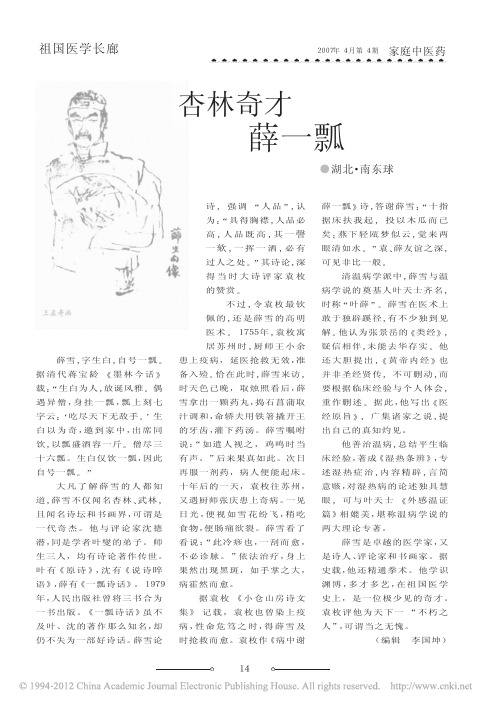 祖国医学长廊
2007年 4月第 4期 家庭中医药
杏林奇才
薛一瓢
●湖北·南东球
薛生白像
薛雪,字生白,自号一瓢。
据清代蒋宝龄《墨林今话》
载:“生白为人,放诞风雅。偶
遇异僧,身挂一瓢,瓢上刻七
字云:‘吃尽天下无敌手。’生
白以为奇,邀到家中,出席同
饮,以瓢盛酒容一斤。僧尽三
十六瓢。生白仅饮一瓢,因此
自号一瓢。”
大凡了解薛雪的人都知
道,薛雪不仅闻名杏林、武林,
且闻名诗坛和书画界,可谓是
一代奇杰。他与评论家沈德
潜,同是学者叶燮的弟子。师
生三人，均有诗论著作传世。
叶有《原诗》,沈有《说诗晬
语》,薛有《一瓢诗话》。1979
年,人民出版社曾将三书合为
一书出版。《一瓢诗话》虽不
及叶、沈的著作那么知名,却
仍不失为一部好诗话。薛雪论
诗，强调“人品”,认
为:“具得胸襟,人品必
高,人品既高,其一謦
一欬,一挥一洒,必有
过人之处。”其诗论,深
得当时大诗评家袁枚
的赞赏。
不过,令袁枚最钦
佩的,还是薛雪的高明
医术。1755年,袁枚寓
居苏州时,厨师王小余
患上疫病，延医抢救无效,准
备入殓。恰在此时,薛雪来访,
时天色已晚，取烛照看后,薛
雪拿出一颗药丸,捣石菖蒲取
汁调和,命轿夫用铁箸撬开王
的牙齿,灌下药汤。薛雪嘱咐
说:“如遣人视之，鸡鸣时当
有声。”后来果真如此。次日
再服一剂药，病人便能起床。
十年后的一天，袁枚往苏州,
又遇厨师张庆患上奇病。一见
日光,便视如雪花纷飞,稍吃
食物,便肠痛欲裂。薛雪看了
看说:“此冷痧也,一刮而愈,
不必诊脉。”依法治疗,身上
果然出现黑斑，如手掌之大,
病霍然而愈。
据袁枚《小仓山房诗文
集》记载，袁枚也曾染上疫
病,性命危笃之时,得薛雪及
时抢救而愈。袁枚作《病中谢
薛一瓢》诗,答谢薛雪:“十指
据床扶我起，投以木瓜而已
矣;燕下轻瓯梦似云,觉来两
眼清如水。”袁、薛友谊之深,
可见非比一般。
清温病学派中,薛雪与温
病学说的奠基人叶天士齐名,
时称“叶薛”。薛雪在医术上
敢于独辟蹊径,有不少独到见
解。他认为张景岳的《类经》,
疑信相伴,未能去华存实。他
还大胆提出,《黄帝内经》也
并非圣经贤传，不可删动,而
要根据临床经验与个人体会,
重作删述。据此,他写出《医
经原旨》，广集诸家之说,提
出自己的真知灼见。
他善治温病,总结平生临
床经验,著成《湿热条辨》,专
述湿热症治,内容精辟,言简
意赅,对湿热病的论述独具慧
眼，可与叶天士《外感温证
篇》相媲美,堪称温病学说的
两大理论专著。
薛雪是卓越的医学家,又
是诗人、评论家和书画家。据
史载,他还精通拳术。他学识
渊博,多才多艺,在祖国医学
史上，是一位极少见的奇才。
袁枚评他为天下一“不朽之
人”,可谓当之无愧。
（编辑 李国坤）
14
© 1994-2012 China Academic Journal Electronic Publishing House. All rights reserved. http://www.cnki.net